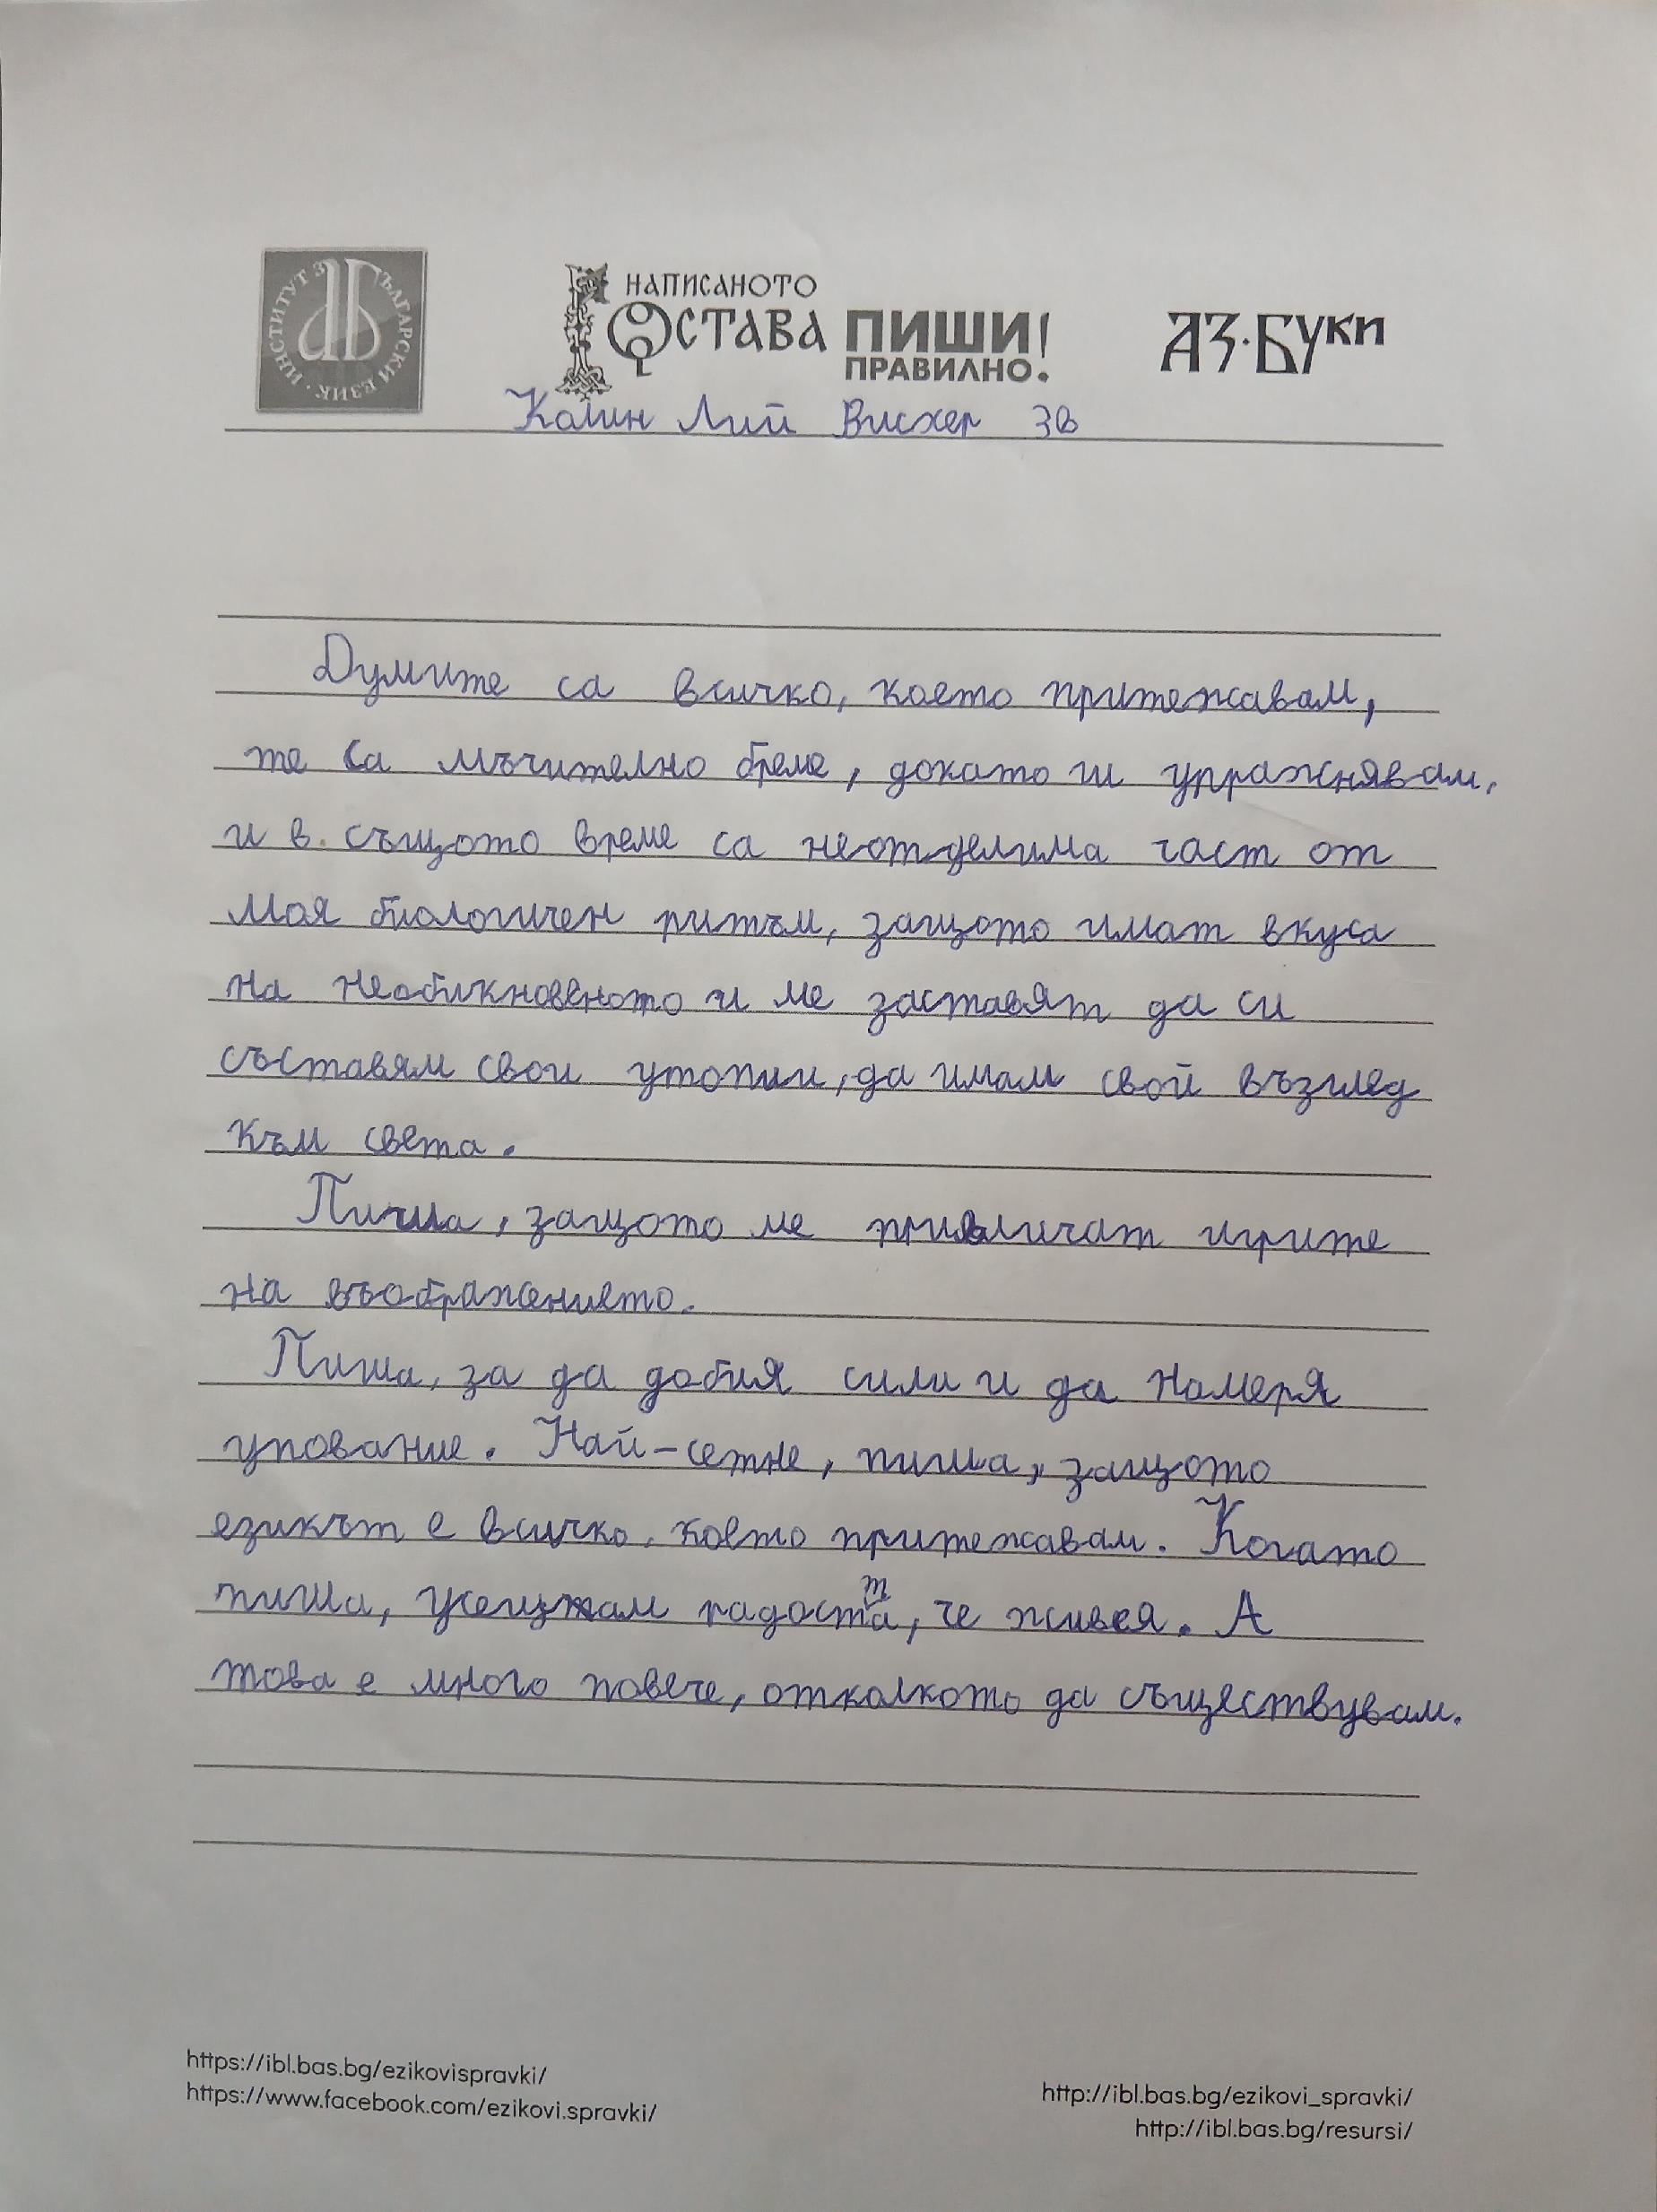 ИНСТИТУТ ЗА БЪЛГАРСКИ ЕЗИК
НАПИСАНОТО
ОСТАВА ПИШИ!
ПРАВИЛНО.
АЗ·БУКИ
Калин Лий Висхер 3в
Думите са всичко, което притежавам,
те са мъчително бреме, докато ги упражнявам,
и в същото време са неотделима част от
моя биологичен ритъм, защото имат вкуса
на необикновеното и ме заставят да си
съставям свои утопии, да имам свой възглед
към света.
Пиша, защото ме привличат игрите
на въображението.
Пиша, за да добия сили и да намеря
упование. Най-сетне, пиша, защото
езикът е всичко, което притежавам. Когато
пиша, усещам радостта, че живея. А
това е много повече, отколкото да съществувам.
https://ibl.bas.bg/ezikovispravki/
https://www.facebook.com/ezikovi.spravki/
http://ibl.bas.bg/ezikovi_spravki/
http://ibl.bas.bg/resursi/